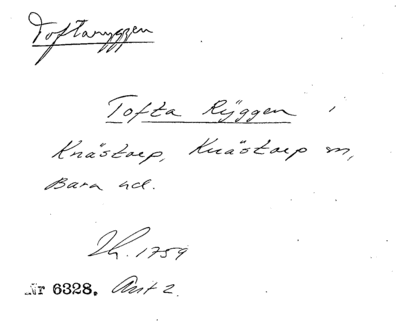 Toftaryggen
Tofta Ryggen i
Knästorp, Knästorp sn,
Bara hd.
Lh. 1759
Nr 6328. Akt 2.